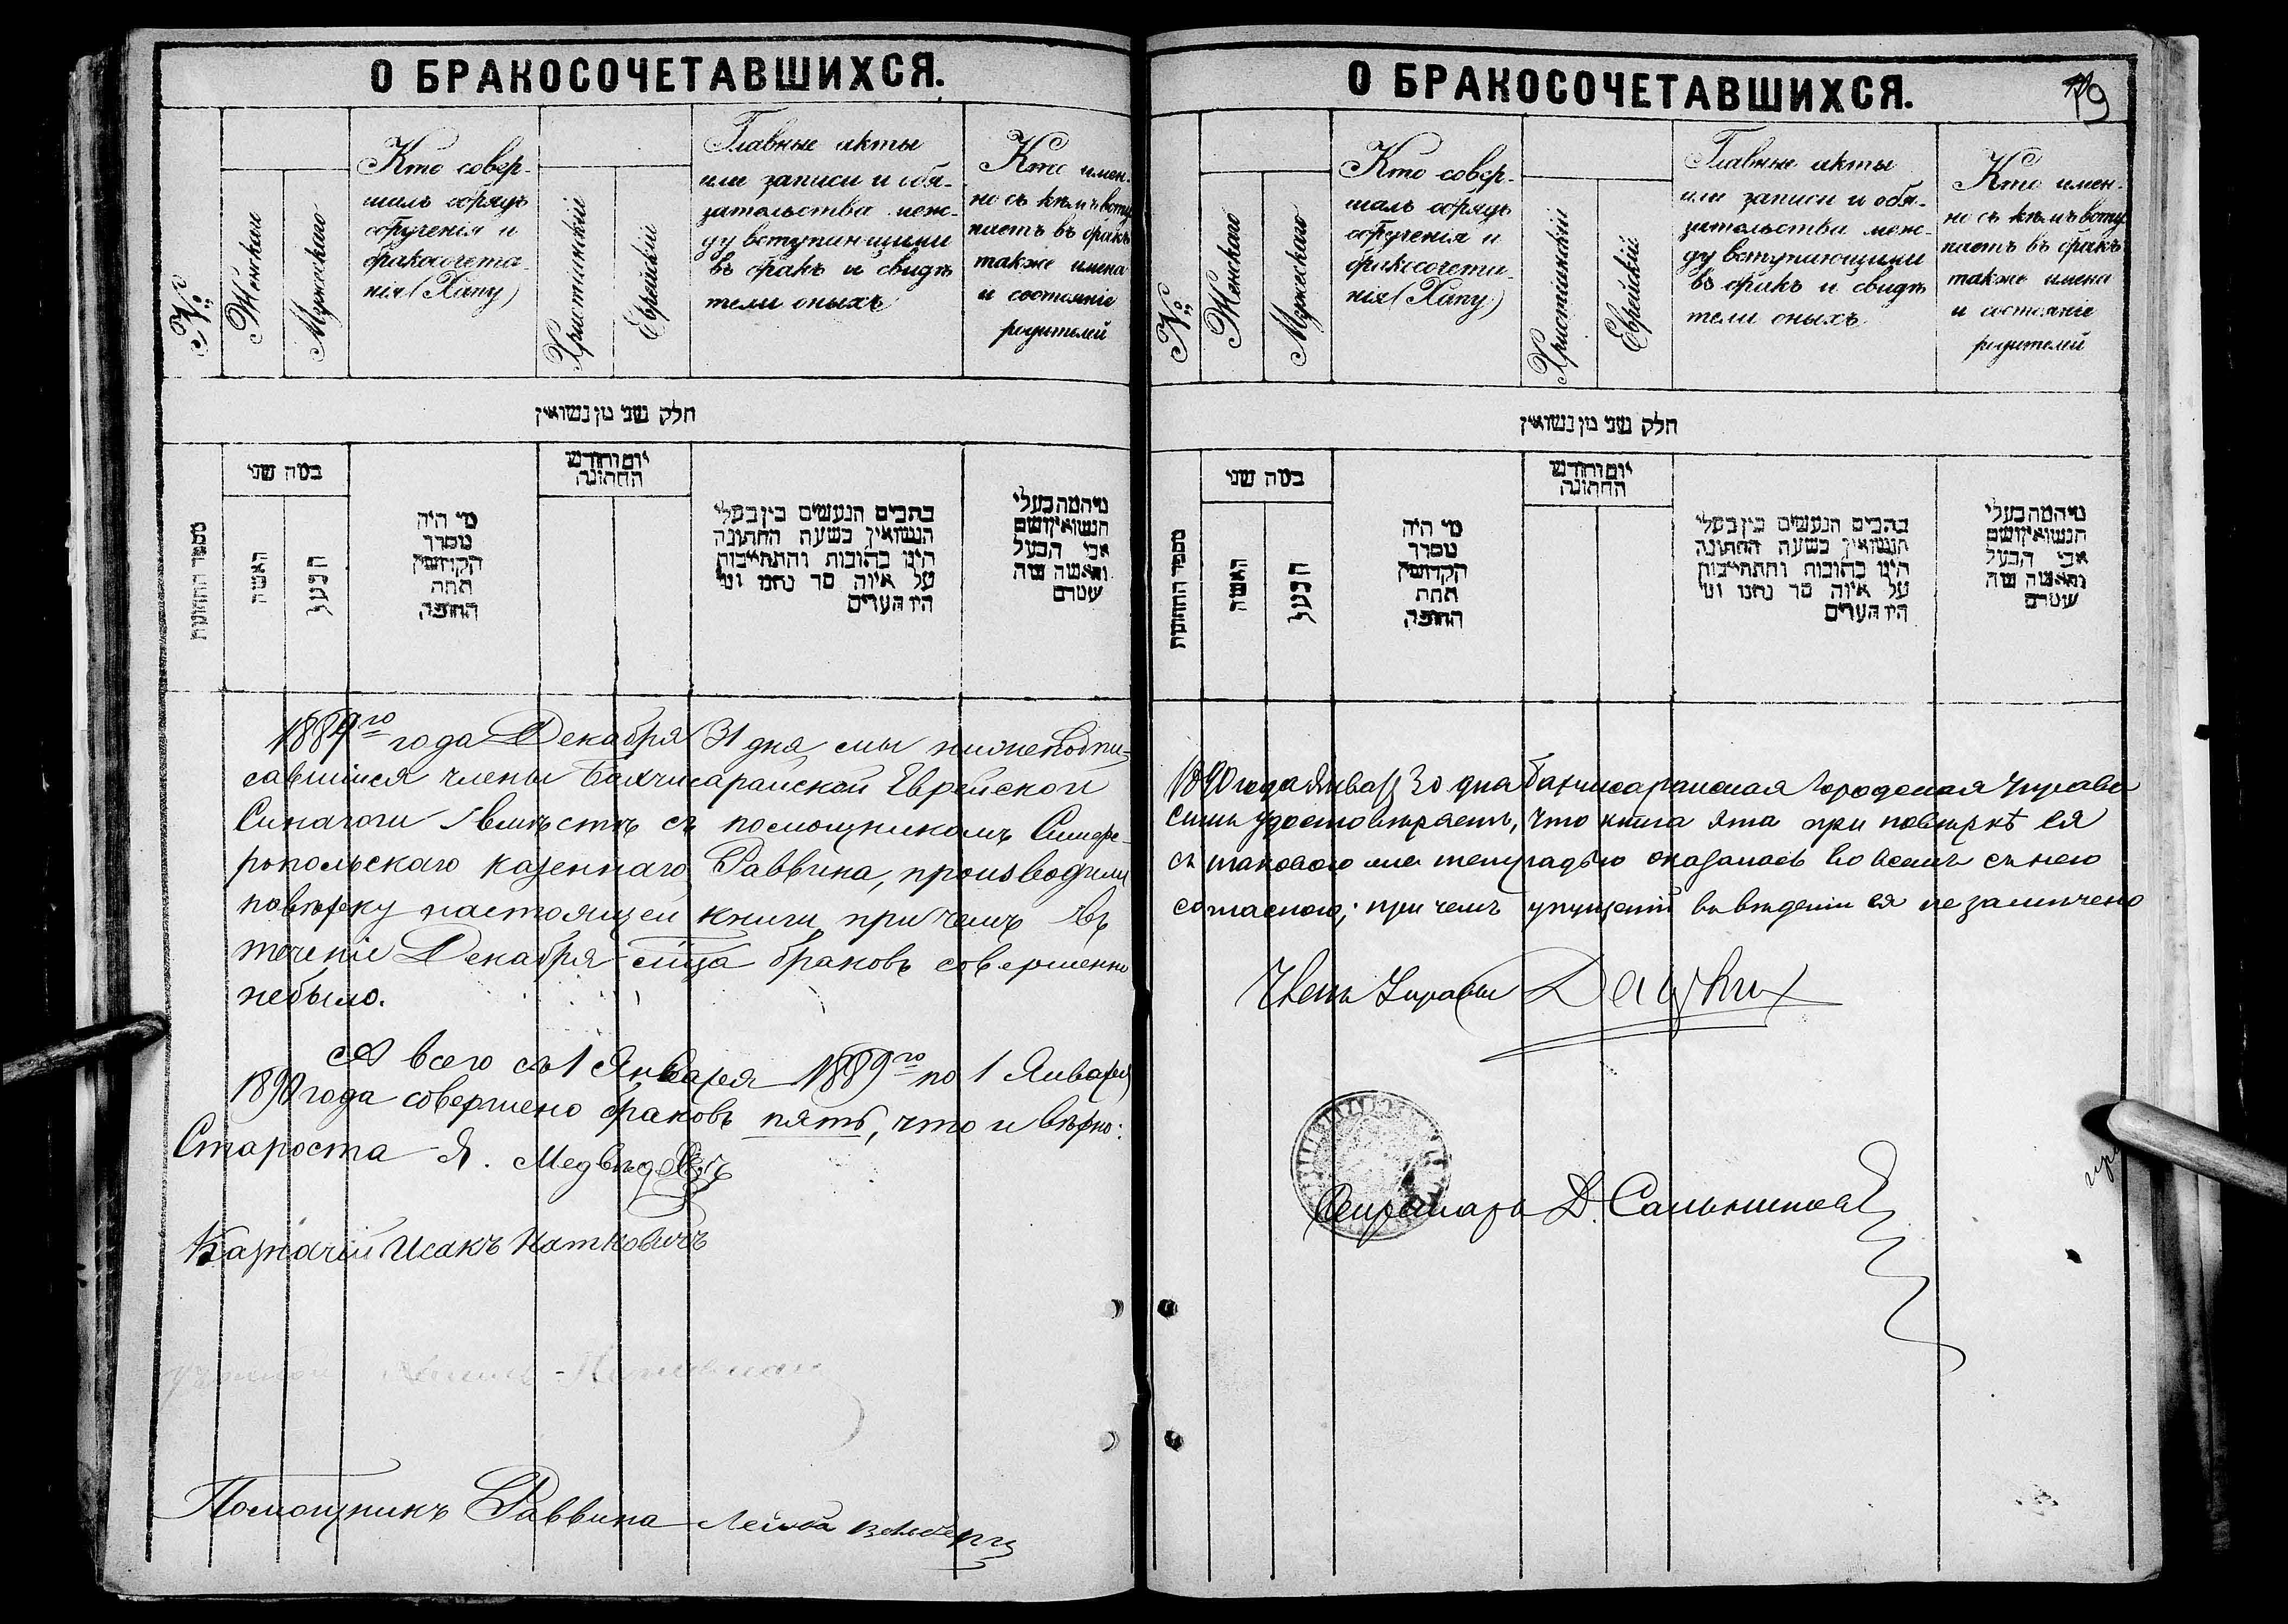 О БРАКОСОЧЕТАВШИХСЯ.
№
Женскаго
Мужескаго
Кто совер-
шалъ обрядъ
обрученія и
бракосочета-
нія (Хапу)
Христіанскій
Еврейскій
Главные акты
или записи и обя-
зательства меж-
ду вступающими
въ бракъ и свидѣ
тели оныхъ
Кто имен-
но съ кѣмъ всту
паетъ въ бракъ
также имена
и состояніе
родителей
חלק שני מן נשואין
מספר החתונות
במה שני
האשה
הבעל
מי היה
מסדר
הקדושין
תחת
החופה
יום וחודש
החתונה
בתבים הנעשים בין בעלי
הנשואין בשעת החתונה
היינו כתובות והתחייבות
על איזה סך נתנו ומי
היו העדים
מיהמה בעלי
הנשואין ושם
אבי הבעל
והאשה מה
שטרם
1889го года Декабря 31 дня, мы нижеподпи-
савшіися члены Бахчисарайской Еврейской
Синагоги вмѣстѣ съ помощникомъ Симфе-
ропольскаго казеннаго Раввина, производили
повѣрку настоящей книги, при чемъ въ
теченіе Декабря м-ца браковъ совершенно
небыло.
А всего съ 1 Января 1889го по 1 Января
1890 года совершено браковъ пять, что и вѣрно:
Староста Я. Медвѣдевъ
Казначей Исакъ Натковичъ
Помощникъ Раввина Лейба
О БРАКОСОЧЕТАВШИХСЯ.
79
№
Женскаго
Мужескаго
Кто совер-
шалъ обрядъ
обрученія и
бракосочета-
нія (Хапу)
Христіанскій
Еврейскій
Главные акты
или записи и обя-
зательства меж-
ду вступающими
въ бракъ и свидѣ
тели оныхъ
Кто имен-
но съ кѣмъ всту
паетъ въ бракъ
также имена
и состояніе
родителей
חלק שני מן נשואין
מספר החתונות
במה שני
האשה
הבעל
מי היה
מסדר
הקדושין
תחת
החופה
יום וחודש
החתונה
בתבים הנעשים בין בעלי
הנשואין בשעת החתונה
היינו כתובות והתחייבות
על איזה סך נתנו ומי
היו העדים
מיהמה בעלי
הנשואין ושם
אבי הבעל
והאשה מה
שטרם
1890 года Января 30 дня Бахчисарайская Городская Управа
симъ удостовѣряетъ, что книга эта при повѣркѣ ея
съ таковою же тетрадью оказалась во всемъ съ нею
согласною; при чемъ упущеній въ веденіи ея не замѣчено
Членъ Управы
Секретарь Д. Сальников